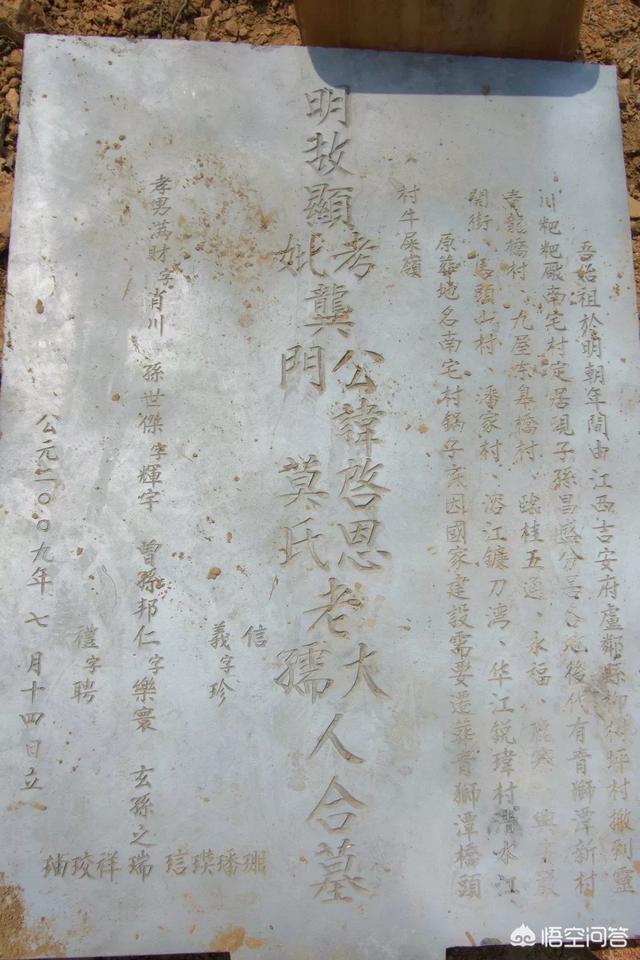 吾始祖於明朝年間由江西吉安府盧鄰縣柳樹坪村搬到靈
川粑粑厰南宅村定居現子孫昌盛分居各地後代有青獅潭新村
青龍橋村、九屋东阜橋村、臨桂五通、永福、龍勝、興安嚴
關街、馬頭山村、潘家村、溶江鐮刀湾、华江锐瑋村潜水江
原葬地名南宅村鍋子底因國家建設需要遷葬青獅潭橋頭
村牛屎嶺
明故顯考龔公諱啓恩老大人合墓
妣門莫氏老孺
孝男萬財字肖川 孫世傑字輝宇 曽孫邦仁字樂寰 玄孫之瑞祥珓
信
義字珍
禮字聘
琂璞璠珊
公元二00九年七月十四日立
悟空问答